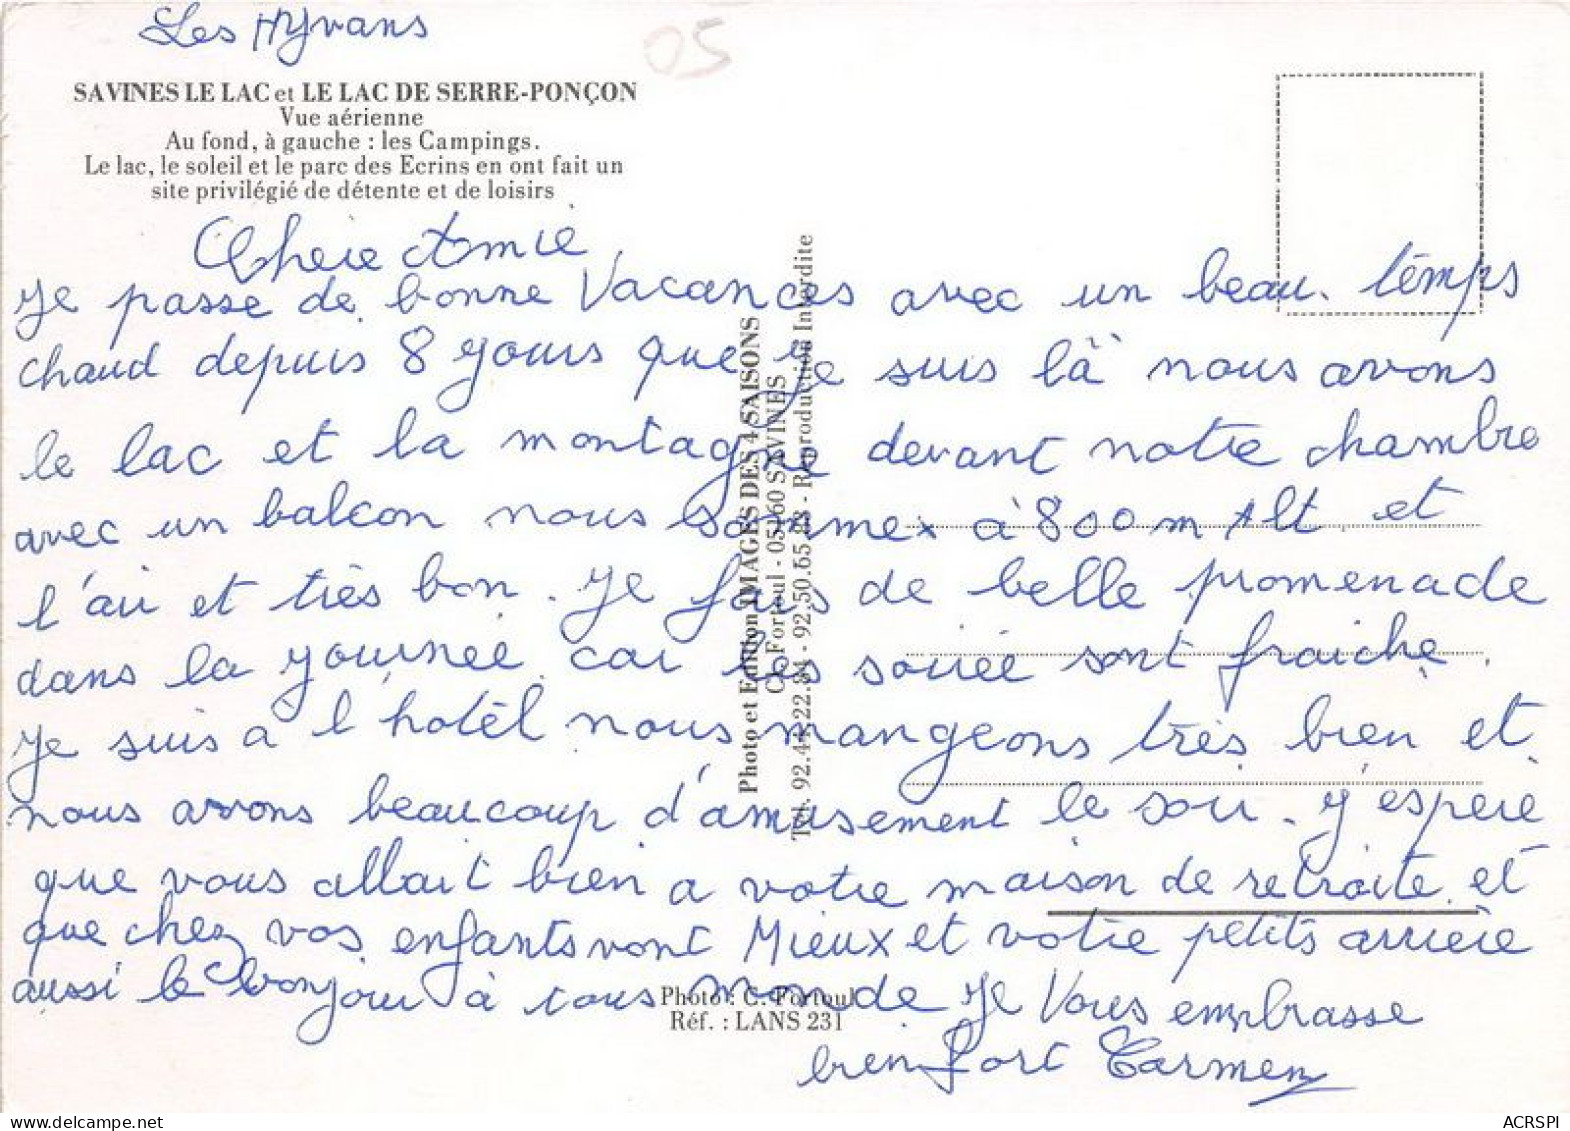 Les Hyvans
05
SAVINES LE LAC et LE LAC DE SERRE-PONÇON
Vue aérienne
Au fond, à gauche : les Campings.
Le lac, le soleil et le parc des Ecrins en ont fait un
site privilégié de détente et de loisirs
Cheie Amie
Je passe de bonne Vacances avec un beau. témps
chaud depuis 8 yours que je suis là nous avons
le lac et la montagne devant notre chambre
avec un balcon nous sommex à 800m Alt. et
l'air et très bon. Je fais de belle promenade
dans la younée car les soirée sont fraiche.
Je suis a l'hotèl nous mangeons très bien et
nous avons beaucoup d'amusement le soir. y'espere
que vous allait bien a votre maison de retraite et
que chez vos enfants vont Mieux et votre petits arriere
aussi le bonjour à tous monde Je Vous embrasse
bien fort Carmen
Photo et Edition IMAGES DES 4 SAISONS
C. Fortoul - 05160 SAVINES
Tél. 92.44.22.84 - 92.50.65.88 - Reproduction Interdite
Photo : C. Fortoul
Réf. : LANS 231
ACRSPI